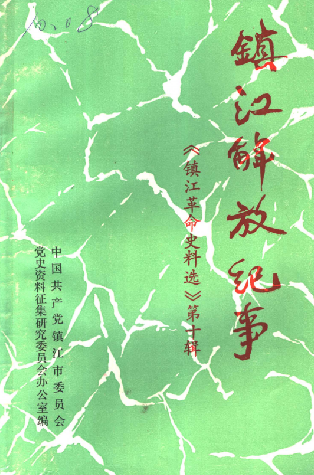 10.08
鎮江解放纪事
《镇江革命史料选》第十辑
中国共产党镇江市委员会
党史资料征集研究委员会办公室编